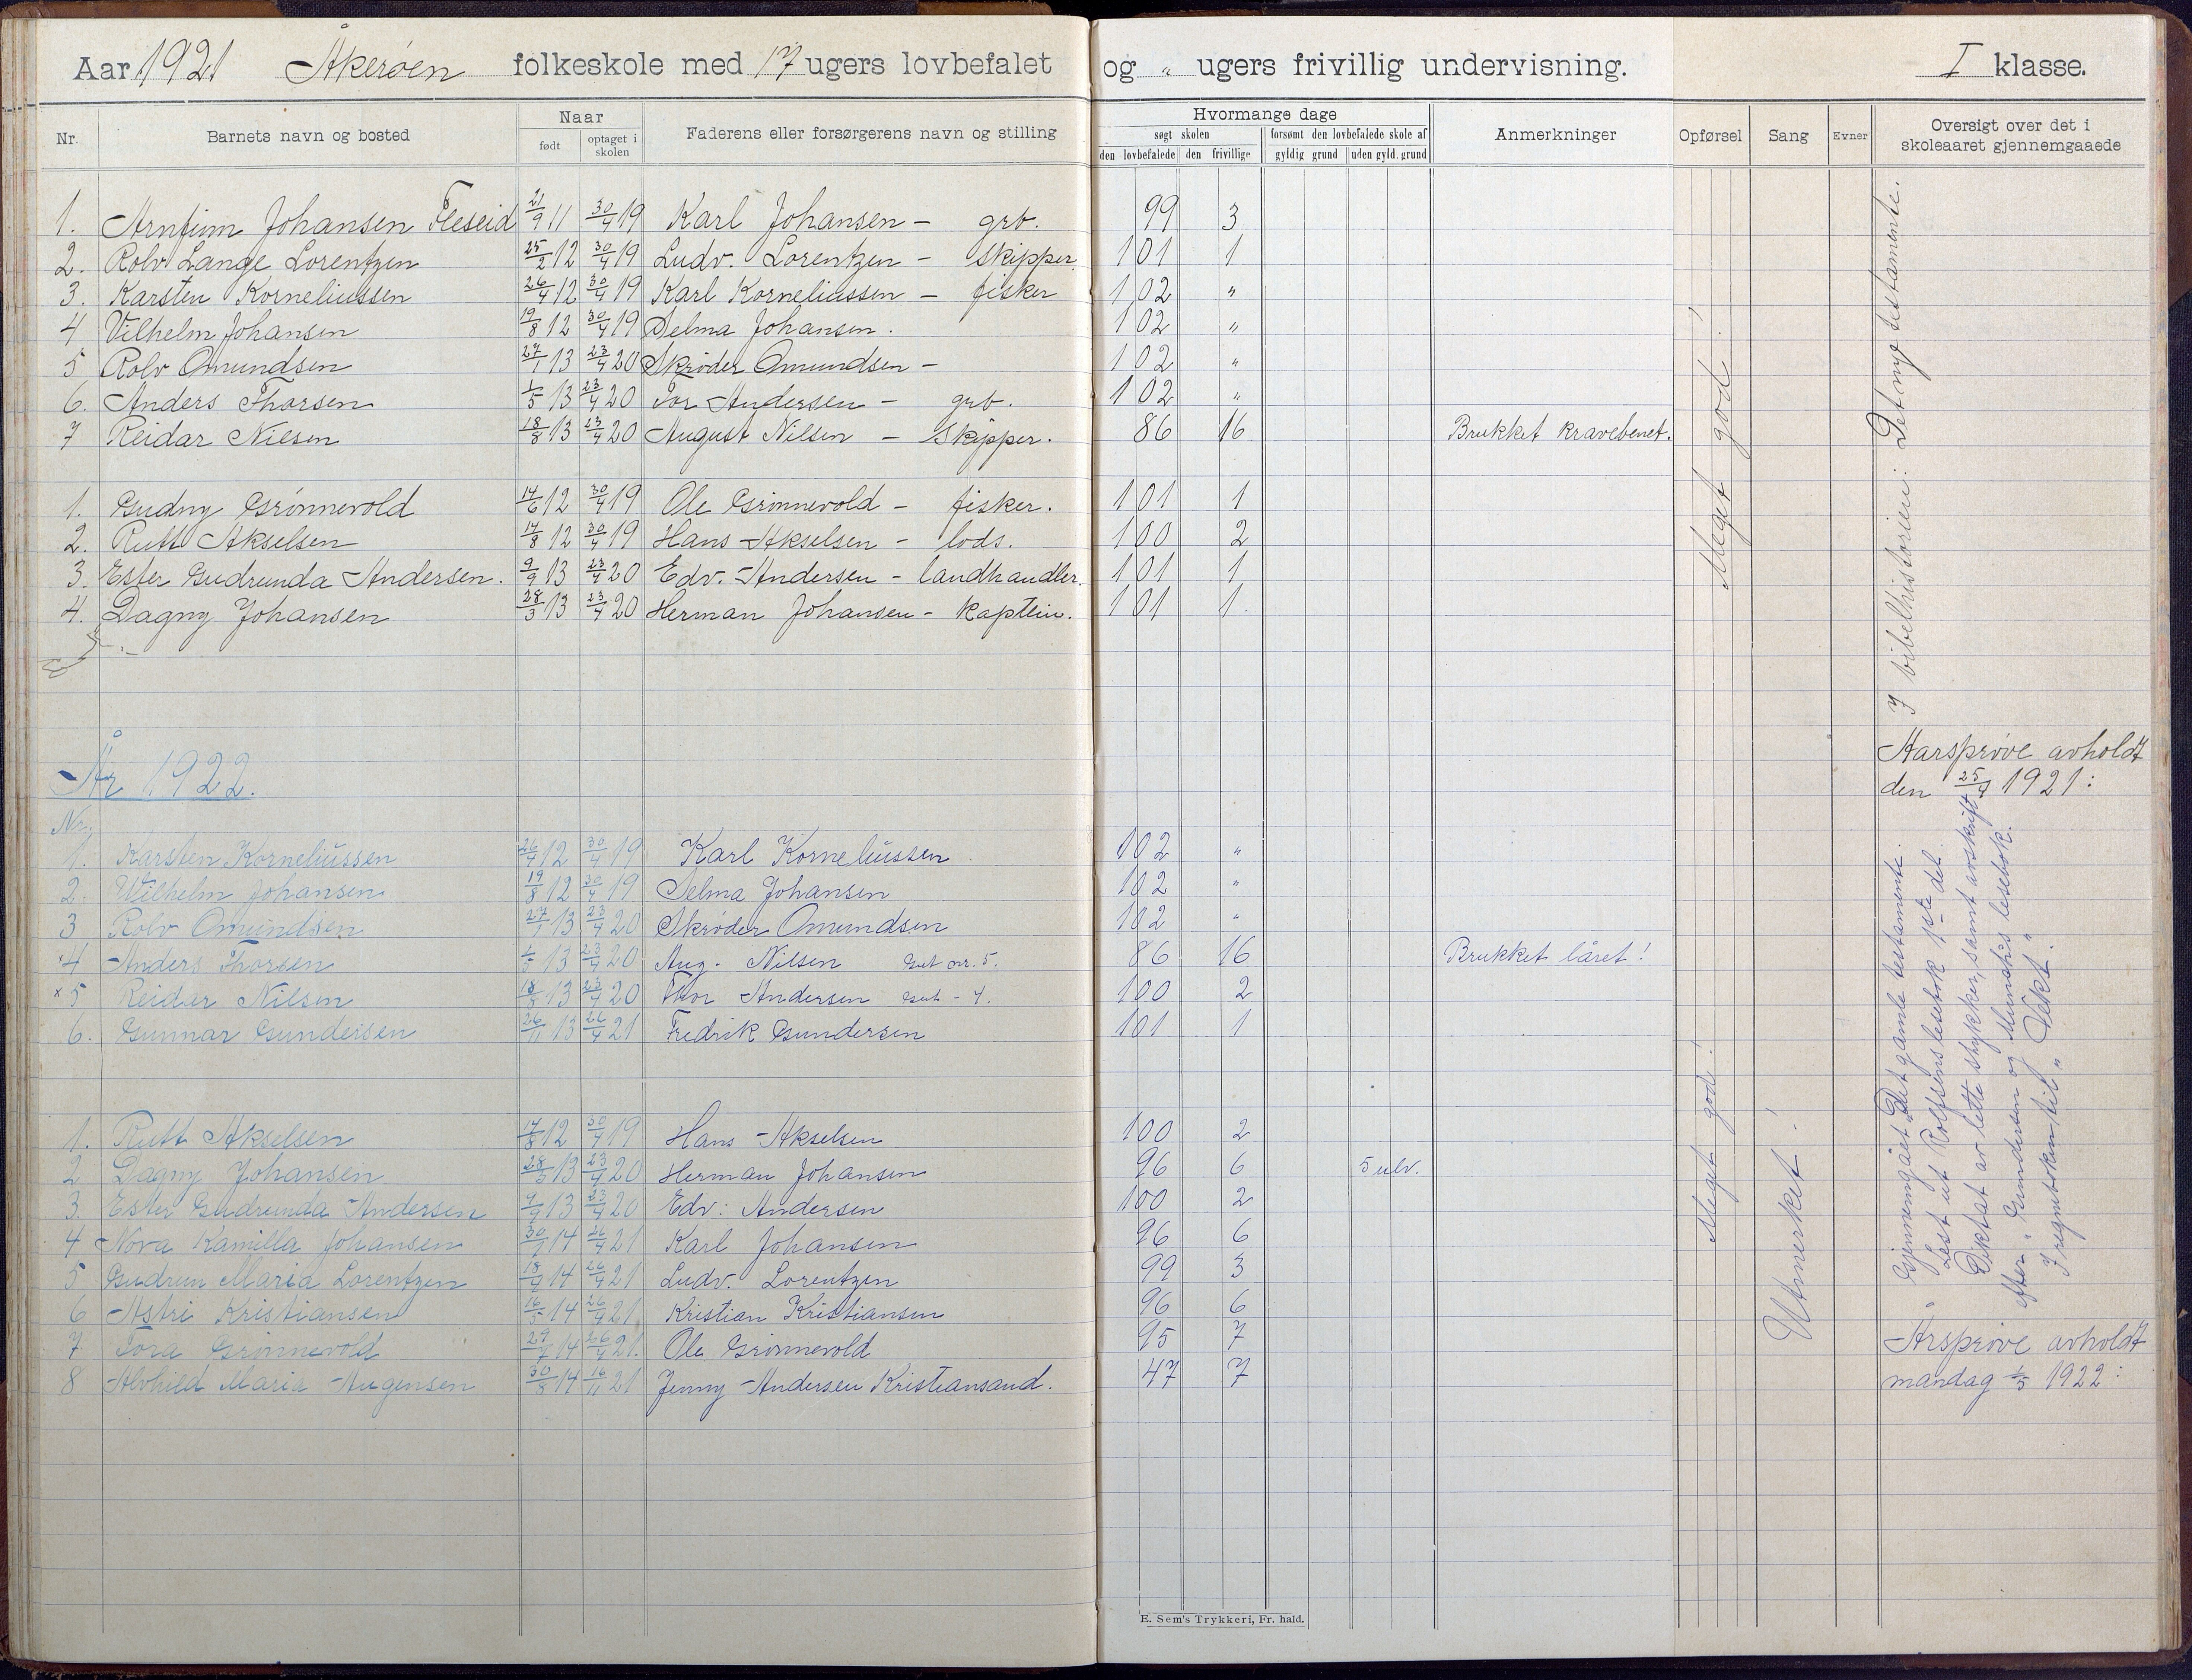 Aar 1921 Åkerøen folkeskole med 17 ugers lovbefalet og " ugers frivillig undervisning. I klasse.
Nr. Barnets navn og bosted Naar født optaget i skolen Faderens eller forsørgerens navn og stilling Hvormange dage søgt skolen den lovbefalede den frivillige forsømt den lovbefalede skole af gyldig grund uden gyld. grund Anmerkninger Opførsel Sang Evner Oversigt over det i skoleaaret gjennemgaaede
1. Arnfinn Johansen Fleseid 21/9 11 30/4 19 Karl Johansen – grb. 99 3
2. Rolv Lange Lorentzen 25/2 12 30/4 19 Ludv. Lorentzen – skipper 101 1
3. Karsten Korneliussen 26/4 12 30/4 19 Karl Korneliussen – fisker 102 "
4 Vilhelm Johansen 19/8 12 30/4 19 Selma Johansen. 102 "
5 Rolv Omundsen 27/1 13 23/4 20 Skrøder Omundsen – 102 "
6. Anders Thorsen 1/5 13 23/4 20 Tor Andersen – grb. 102 "
7 Reidar Nilsen 18/8 13 23/4 20 August Nilsen – Skipper. 86 16 Brukket kravebenet.
1. Gudny Grønnevold 14/6 12 30/4 19 Ole Grønnevold – fisker. 101 1
2. Rutt Akselsen 14/8 12 30/4 19 Hans Akselsen – lods. 100 2
3. Ester Gudrunda Andersen. 9/9 13 23/4 20 Edv. Andersen – landhandler. 101 1
4. Dagny Johansen 28/3 13 23/4 20 Herman Johansen – Kaptein. 101 1
Meget god!
I bibelhistorien: Det nye testamente.
Aarsprøve avholdt
den 25/4 1921:
År 1922.
Nr.
1. Karsten Korneliussen 26/4 12 30/4 19 Karl Korneliussen 102 "
2. Wilhelm Johansen 19/8 12 30/4 19 Selma Johansen 102 "
3 Rolv Omundsen 27/1 13 23/4 20 Skrøder Omundsen 102 "
x4 Anders Thorsen 1/5 13 23/4 20 Aug. Nilsen Gut nr. 5. 86 16 Brukket låret!
x5 Reidar Nilsen 18/8 13 23/4 20 Thor Andersen Gut - 4. 100 2
6. Gunnar Gundersen 26/11 13 26/4 21 Fredrik Gundersen 101 1
1. Rutt Akselsen 14/8 12 30/4 19 Hans Akselsen 100 2
2 Dagny Johansen 28/3 13 23/4 20 Herman Johansen 96 6 5 ulv.
3. Ester Gudrunda Andersen 9/9 13 23/4 20 Edv. Andersen 100 2
4 Nora Kamilla Johansen 30/1 14 26/4 21 Karl Johansen 96 6
5 Gudrun Maria Lorentzen 18/4 14 26/4 21 Ludv. Lorentzen 99 3
6 Astri Kristiansen 16/5 14 26/4 21. Kristian Kristiansen 96 6
7 Tora Grønnevold 29/7 14 26/4 21. Ole Grønnevold 95 7
8 Alvhild Maria Augensen 30/8 14 16/11 21 Jenny Andersen Kristiansand. 47 7
Meget god!
Utmerket!
" Gjennemgået Det gamle testamente.
Lest ut Rolfsens lesebok 1ste del.
Diktat av lette stykker, samt avskrift
efter " Gundersen og Munshés lesebok.
I regneboken til " Vekt."
Årsprøve avholdt
mandag 1/5 1922:
E. Sem's Trykkeri, Fr. hald.